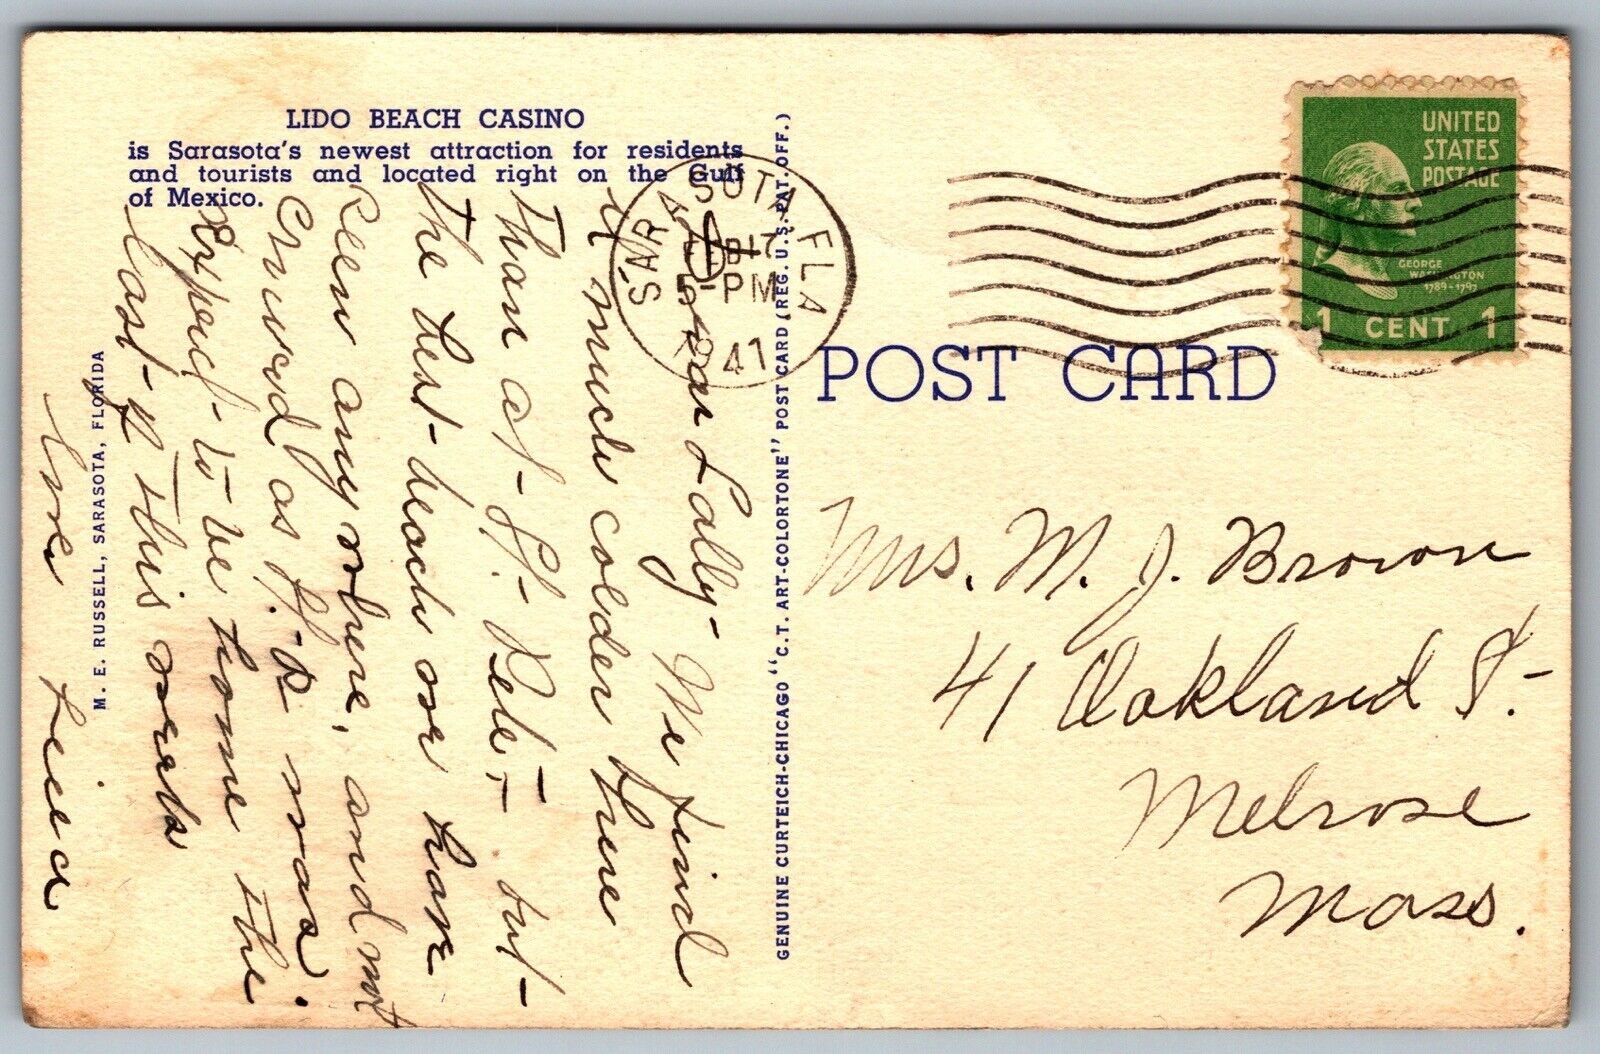 LIDO BEACH CASINO
is Sarasota's newest attraction for residents
and tourists and located right on the Gulf
of Mexico.
M. E. RUSSELL, SARASOTA, FLORIDA
Dear Lally - We find
it much colder here
than at St. Pete - but
the best beach we have
been any where, and not
Crowded as St. P was.
Expect to be home the
last of this week
Love
GENUINE CURTEICH-CHICAGO "C.T. ART-COLORTONE" POST CARD (REG. U.S. PAT. OFF.)
SARASOTA FLA
FEB 17
5 - PM
1941
UNITED
STATES
POSTAGE
GEORGE
WASHINGTON
1789-1797
1 CENT 1
POST CARD
Mrs. M. J. Brown
41 Oakland St.
Melrose
Mass.